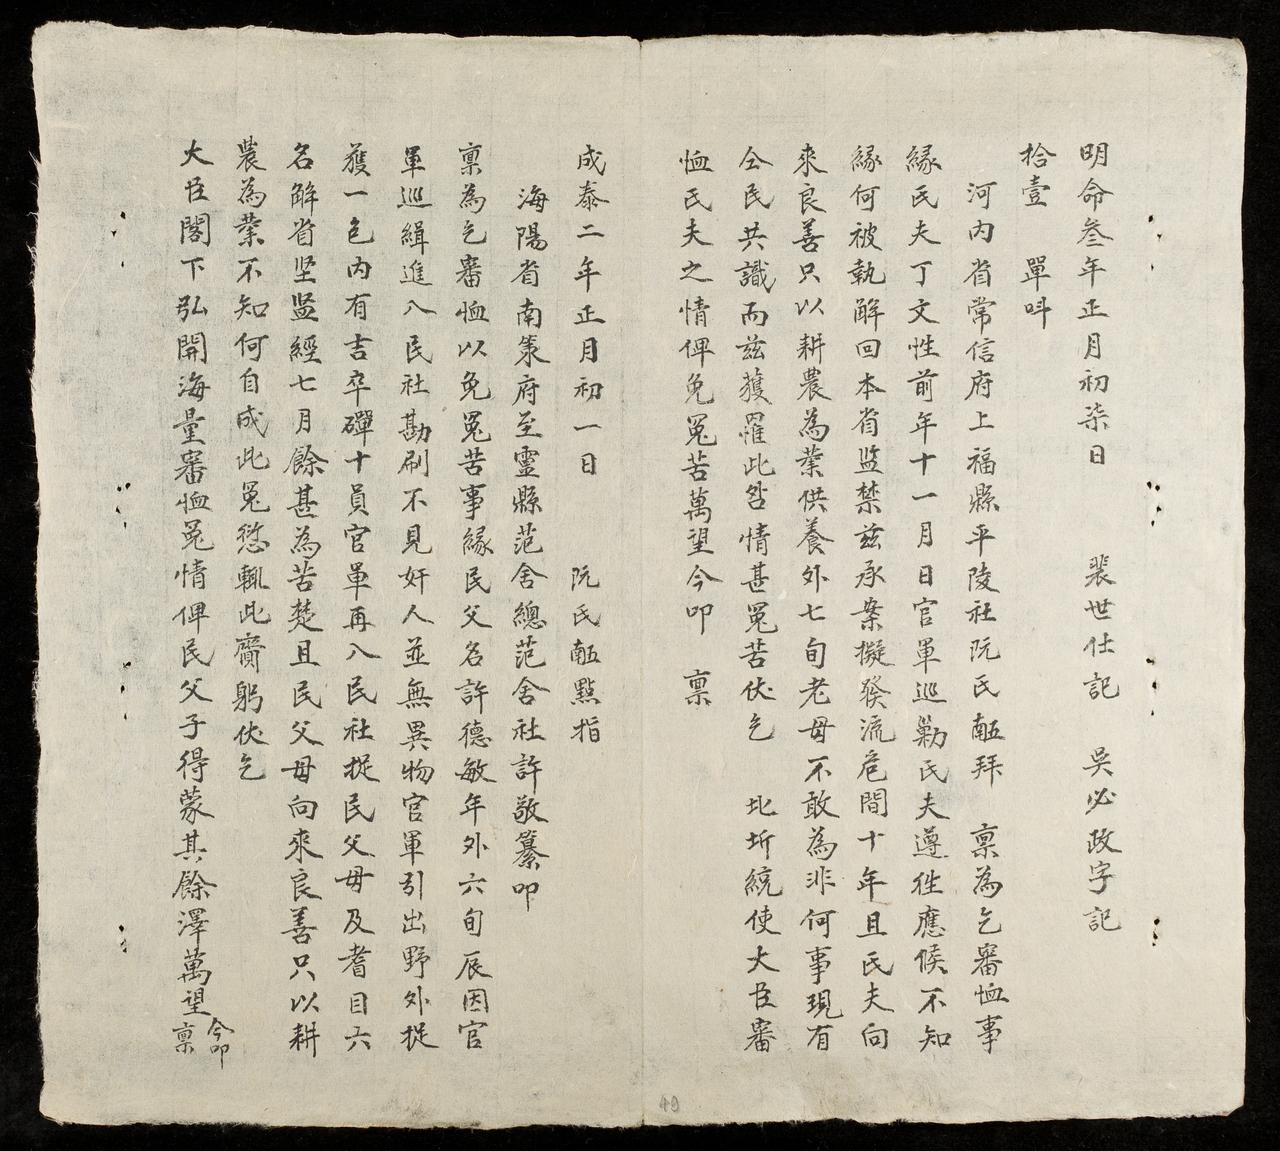 明命叁年正月初柒日 裴世仕記 吳必政字記
拾壹 單呌
河内省常信府上福縣平陵社阮氏𫪁拜 稟為乞審恤事
緣氏夫丁文性前年十一月日官軍巡勦氏夫遵徃應候不知
緣何被執解回本省监禁兹承案擬發流危間十年且氏夫向
來良善只以耕農為業供養外七旬老母不敢為非何事現有
仝民共識而兹獲罹此咎情甚冤苦伏乞 北圻統使大臣審
恤氏夫之情俾免冤苦萬望今叩 稟
成泰二年正月初一日 阮氏𫪁點指
海陽省南策府至靈縣范舍總范舍社許敬纂叩
稟為乞審恤以免冤苦事緣民父名許德敏年外六旬辰因官
軍巡緝進入民社勘刷不見奸人並無異物官軍引出野外捉
獲一包内有吉卒磾十員官軍再入民社捉民父母及耆目六
名解省坚监經七月餘甚為苦楚且民父母向來良善只以耕
農為業不知何自成此冤愆輒此齎躬伏乞
大臣閣下弘開海量審恤冤情俾民父子得蒙其餘澤萬望今叩稟
49